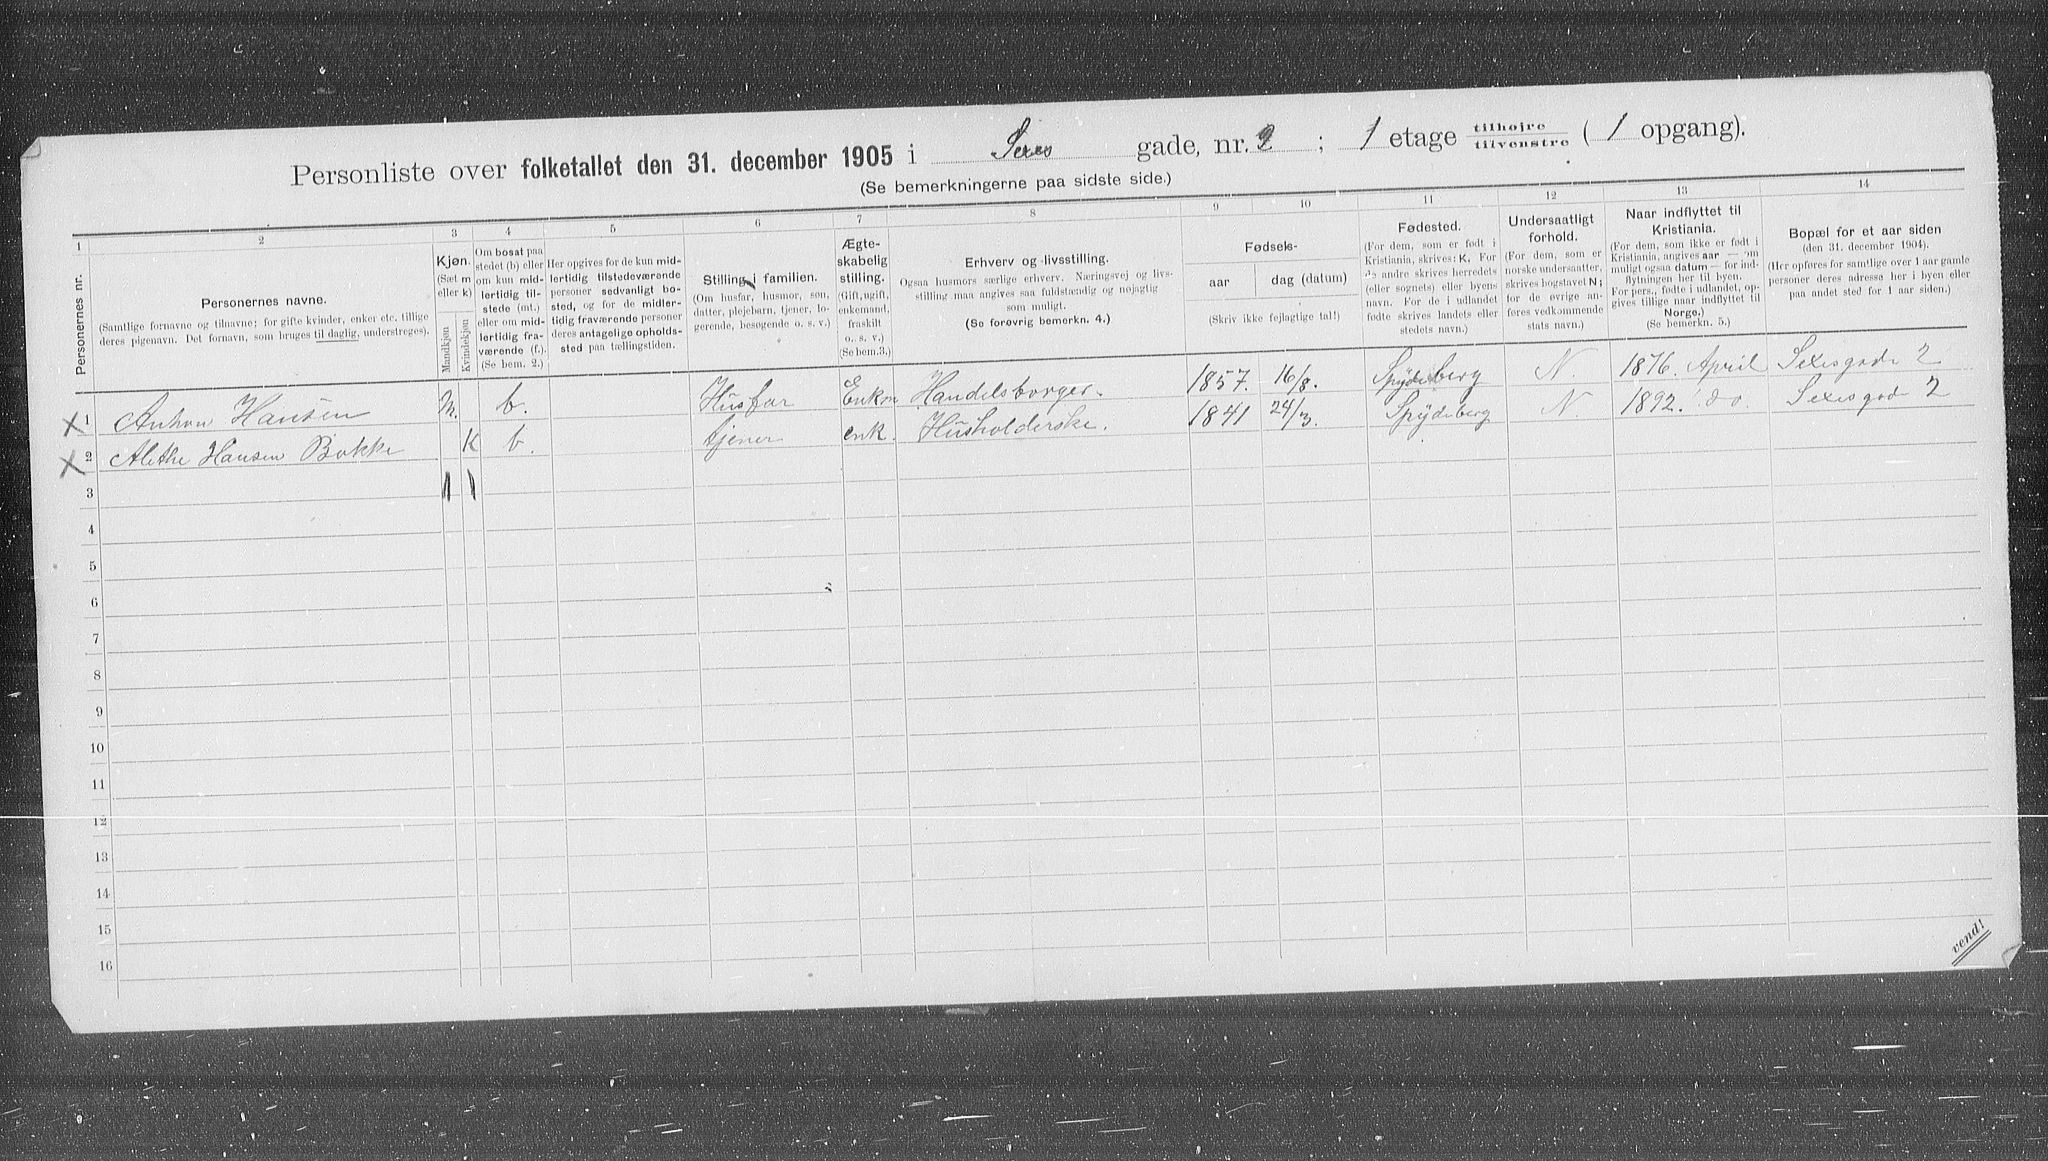 Personliste over folketallet den 31. december 1905 i Sexes gade, nr. 2 ; 1 etage tilhøire / tilvenstre ( 1 opgang).
(Se bemerkningerne paa sidste side.)
1 2 3 4 5 6 7 8 9 10 11 12 13 14
Personernes nr.
Personernes navne.
(Samtlige fornavne og tilnavne; for gifte kvinder, enker etc. tillige
deres pigenavn. Det fornavn, som bruges til daglig, understreges).
Kjøn.
(Sæt m
eller k)
Mandkjøn
Kvindekjøn
Om bosat paa
stedet (b) eller
om kun mid-
lertidig til-
stede (mt.)
eller om mid-
lertidig fra-
værende (f.).
(Se bem. 2.)
Her opgives for de kun mid-
lertidig tilstedeværende
personer sedvanligt bo-
sted, og for de midler-
tidig fraværende personer
deres antagelige opholds-
sted paa tællingstiden.
Stilling i familien.
(Om husfar, husmor, søn,
datter, plejebarn, tjener, lo-
gerende, besøgende o. s. v.)
Ægte-
skabelig
stilling.
(Gift, ugift,
enkemand,
fraskilt
o. s. v.)
(Se bem.3.)
Erhverv og livsstilling.
Ogsaa husmors særlige erhverv. Næringsvej og livs-
stilling maa angives saa fuldstændig og nøjagtig
som muligt.
(Se forøvrig bemerkn. 4.)
Fødsels-
aar dag (datum)
(Skriv ikke fejlagtige tal!)
Fødested.
(For dem, som er født i
Kristiania, skrives: K. For
de andre skrives herredets
(eller sognets) eller byens
navn. For de i udlandet
fødte skrives landets eller
stedets navn.)
Undersaatligt
forhold.
(For dem, som er
norske undersaatter,
skrives bogstavet N;
for de øvrige an-
føres vedkommende
stats navn.)
Naar indflyttet til
Kristiania.
(For dem, som ikke er født i
Kristiania, angives aar — om
muligt ogsaa datum — for ind-
flytningen her til byen.
For pers., født i udlandet, op-
gives tillige naar indflyttet til
Norge.)
(Se bemerkn. 5.)
Bopæl for et aar siden
(den 31. december 1904).
(Her opføres for samtlige over 1 aar gamle
personer deres adresse her i byen eller
paa andet sted for 1 aar siden.)
X 1 Anton Hansen M. b. Husfar Enkm Handelsborger. 1857. 16/8. Spydeberg N. 1876. April Sexesgade 2
X 2 Alethe Hansen Bakke K b. tjener enk. Husholderske. 1841 24/3. Spydeberg N 1892. do Sexesgade 2
3 1 1
4
5
6
7
8
9
10
11
12
13
14
15
16
vend!